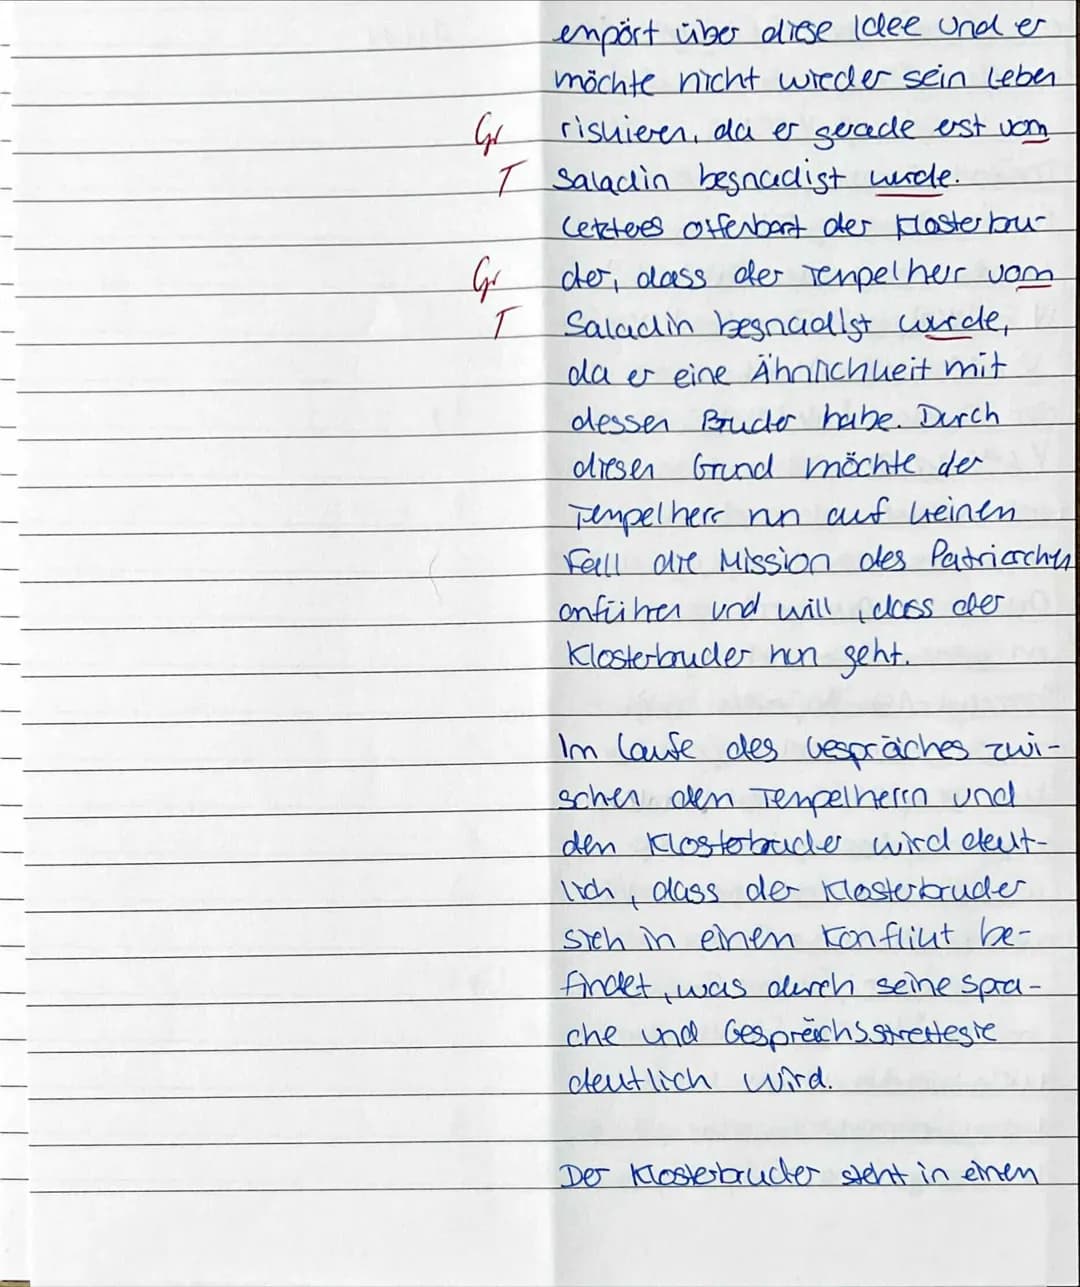 empört über diese Idee und er
möchte nicht wieder sein Leben
Gr riskieren, da er gerade erst vom
T Saladin begnadigt wurde.
Letzteres offenbart der Klosterbru-
Gr der, dass der Tempelherr vom
T Saladin begnadigt wurde,
da er eine Ähnlichkeit mit
dessen Bruder habe. Durch
diesen Grund möchte der
Tempelherr nun auf keinen
Fall die Mission des Patriarchen
anführen und will, dass der
Klosterbruder nun geht.
Im Laufe des Gespräches zwi-
schen dem Tempelherrn und
den Klosterbruder wird deut-
lich, dass der Klosterbruder
sich in einen Konflikt be-
findet, was durch seine Spra-
che und Gesprächsstrategie
deutlich wird.
Der Klosterbruder steht in einen